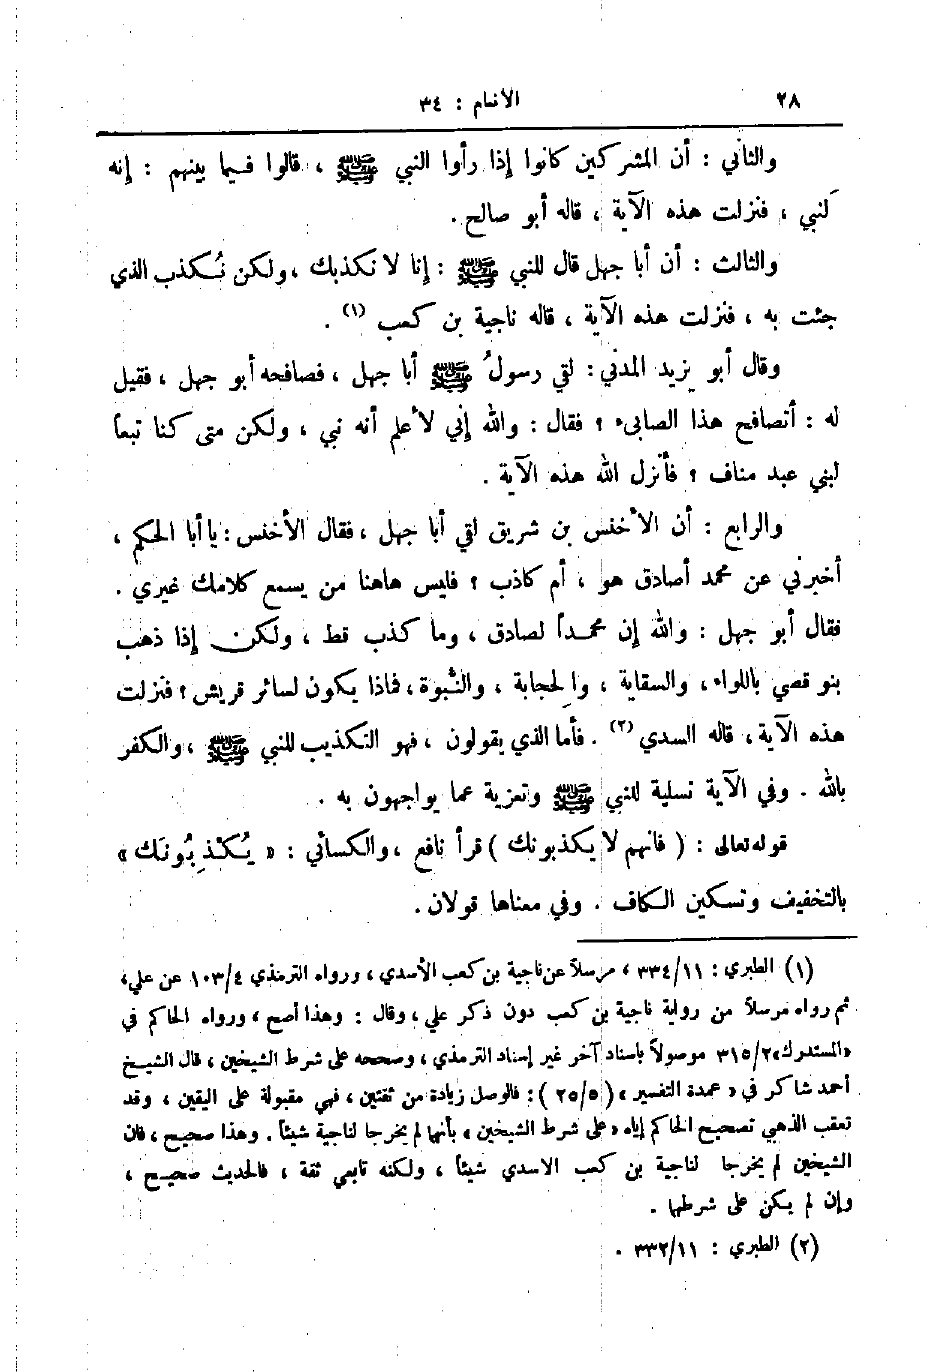 ٢٨
الأنعام : ٣٤
والثاني : أن المشركين كانوا إذا رأوا النبي ﷺ ، قالوا فيما بينهم : إنه
لَنبي ، فنزلت هذه الآية ، قاله أبو صالح .
والثالث : أن أبا جهل قال للنبي ﷺ : إنا لا نكذبك ، ولكن نُكذب الذي
جئت به ، فنزلت هذه الآية ، قاله ناجية بن كعب (١) .
وقال أبو يزيد المدني : لقي رسولُ ﷺ أبا جهل ، فصافحه أبو جهل ، فقيل
له : أتصافح هذا الصابىء ؟ فقال : والله إني لأعلم أنه نبي ، ولكن متى كنا تبعاً
لبني عبد مناف ؟ فأنزل الله هذه الآية .
والرابع : أن الأخنس بن شريق لقي أبا جهل ، فقال الأخنس : يا أبا الحكم ،
أخبرني عن محمد أصادق هو ، أم كاذب ؟ فليس هاهنا من يسمع كلامك غيري .
فقال أبو جهل : والله إن محمداً لصادق ، وما كذب قط ، ولكن إذا ذهب
بنو قصي باللواء ، والسقاية ، والحجابة ، والنُّبوة ، فماذا يكون لسائر قريش ؟ فنزلت
هذه الآية ، قاله السدي (٢) . فأما الذي يقولون ، فهو التكذيب للنبي ﷺ ، والكفر
بالله . وفي الآية تسلية للنبي ﷺ وتعزية عما يواجهون به .
قوله تعالى : ( فانهم لا يكذبونك ) قرأ نافع ، والكسائي : « يُكْذِبُونَك »
بالتخفيف وتسكين الكاف . وفي معناها قولان .
(١) الطبري : ٣٣٤/١١ ، مرسلاً عن ناجية بن كعب الأسدي ، ورواه الترمذي ١٠٣/٤ عن علي ،
ثم رواه مرسلاً من رواية ناجية بن كعب دون ذكر علي ، وقال : وهذا أصح ، ورواه الحاكم في
«المستدرك» ٣١٥/٢ موصولاً باسناد آخر غير إسناد الترمذي ، وصححه على شرط الشيخين ، قال الشيخ
أحمد شاكر في « عمدة التفسير » ( ٢٥/٥ ) : فالوصل زيادة من ثقتين ، فهي مقبولة على اليقين ، وقد
تعقب الذهبي تصحيح الحاكم إياه «على شرط الشيخين » بأنهما لم يخرجا لناجية شيئاً . وهذا صحيح ، فان
الشيخين لم يخرجا لناجية بن كعب الاسدي شيئاً ، ولكنه تابعي ثقة ، فالحديث صحيح ،
وإن لم يكن على شرطهما .
(٢) الطبري : ٣٣٢/١١ .